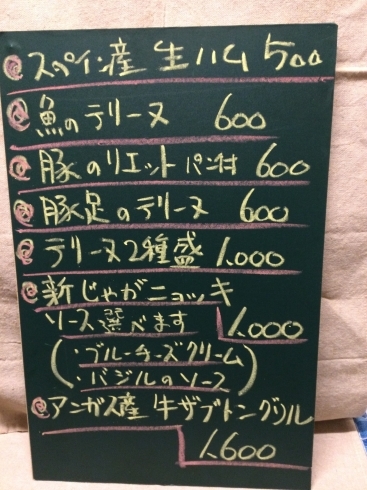 スペイン産 生ハム 500
魚のテリーヌ 600
豚のリエット パン付 600
豚足のテリーヌ 600
テリーヌ2種盛 1,000
新じゃがニョッキ
ソース選べます 1,000
(・ブルーチーズクリーム
・バジルのソース)
アンガス産 牛ザブトングリル
1,600